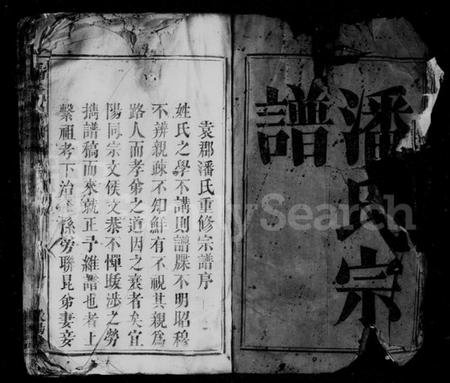 潘氏宗
譜
袁郡潘氏重修宗譜序
姓氏之學不講則譜牒不明昭穆
不辨親疎不知鮮有不視其親爲
路人而孝弟之道因之衰者矣宜
陽同宗文侯文恭不憚跋涉之勞
携譜稿而來就正予維譜也者上
繫祖考下治孫旁聯昆弟妻妾
Search